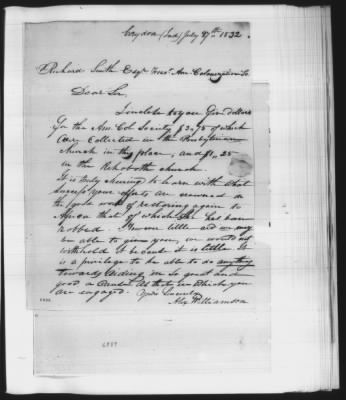 Corydon (Ind) July 27th 1832.
Richard Smith Esqr Treasr Am. Colonization So.
Dear Sir,
I inclose to you Five dollars
for the Am. Col. Society $3.75 of which
was collected in the Presbyterian
church in this place, and $1.25
in the Rehoboth church.
It is truly cheering to learn with what
success your efforts are crowned in
the good work of restoring again to
Africa that of which she has been
robbed. However little aid we may
be able to give you, we would not
withhold it because it is little. It
is a privilege to be able to do anything
towards aiding in so great and
good a cause as that in which you
are engaged. Yours Sincerely
Alex Williamson
6989